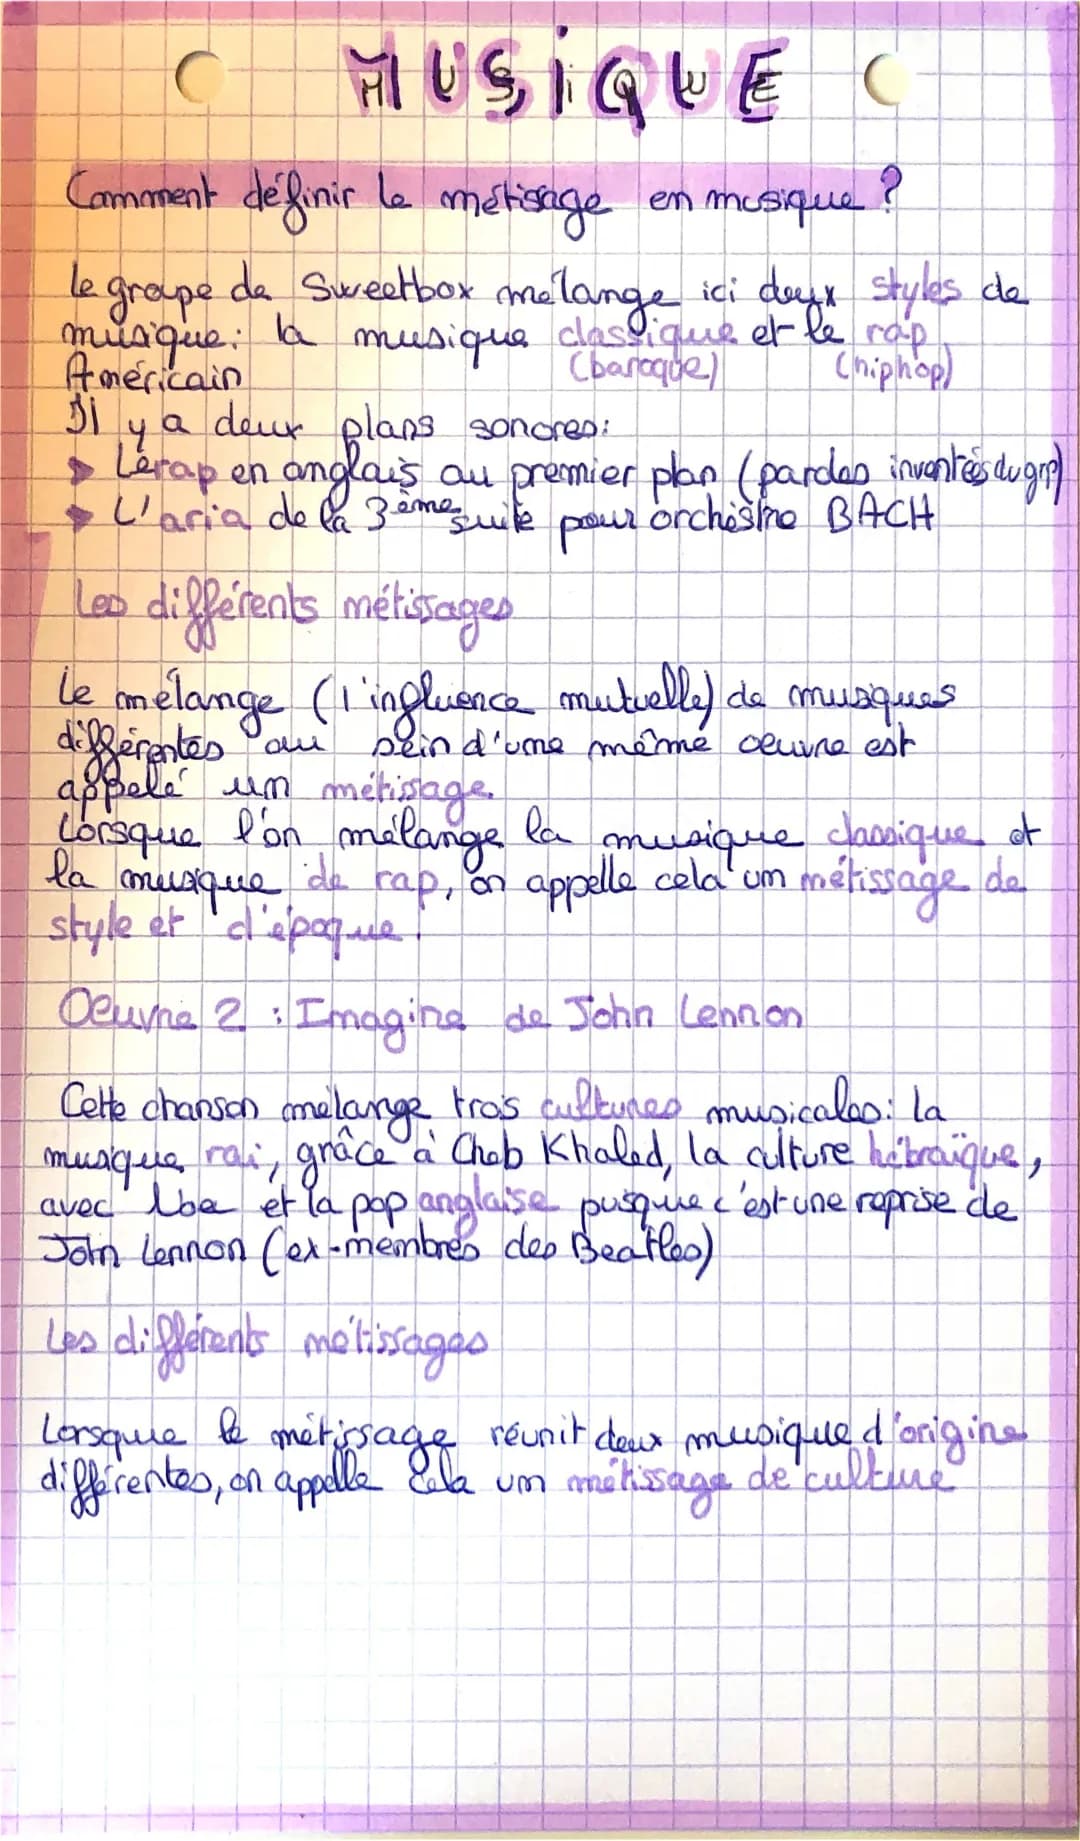 MUSIQUE
Comment définir le métisage en musique ?
le groupe de Sweetbox mélange ici deux styles de
musique: la musique classique et le rap
Américain (baroque) (hiphop)
Il y a deux plans sonores:
Le rap en anglais au premier plan (paroles inventées du grp)
L'aria de la 3ème suite pour orchestre BACH
Les différents métissages
Le mélange (l'influence mutuelle) de musiques
différentes au sein d'une même oeuvre est
appelé un métissage.
Lorsque l'on mélange la musique classique et
la musique de rap, on appelle cela un métissage de
style et d'époque.
Oeuvre 2 : Imagine de John Lennon
Cette chanson mélange trois cultures musicales: la
musique rai, grâce à Cheb Khaled, la culture hébraïque,
avec et la pop anglaise puisque c'est une reprise de
John Lennon (ex-membres des Beatles)
Les différents métissages
Lorsque le métissage réunit deux musique d'origine
différentes, on appelle cela un métissage de culture